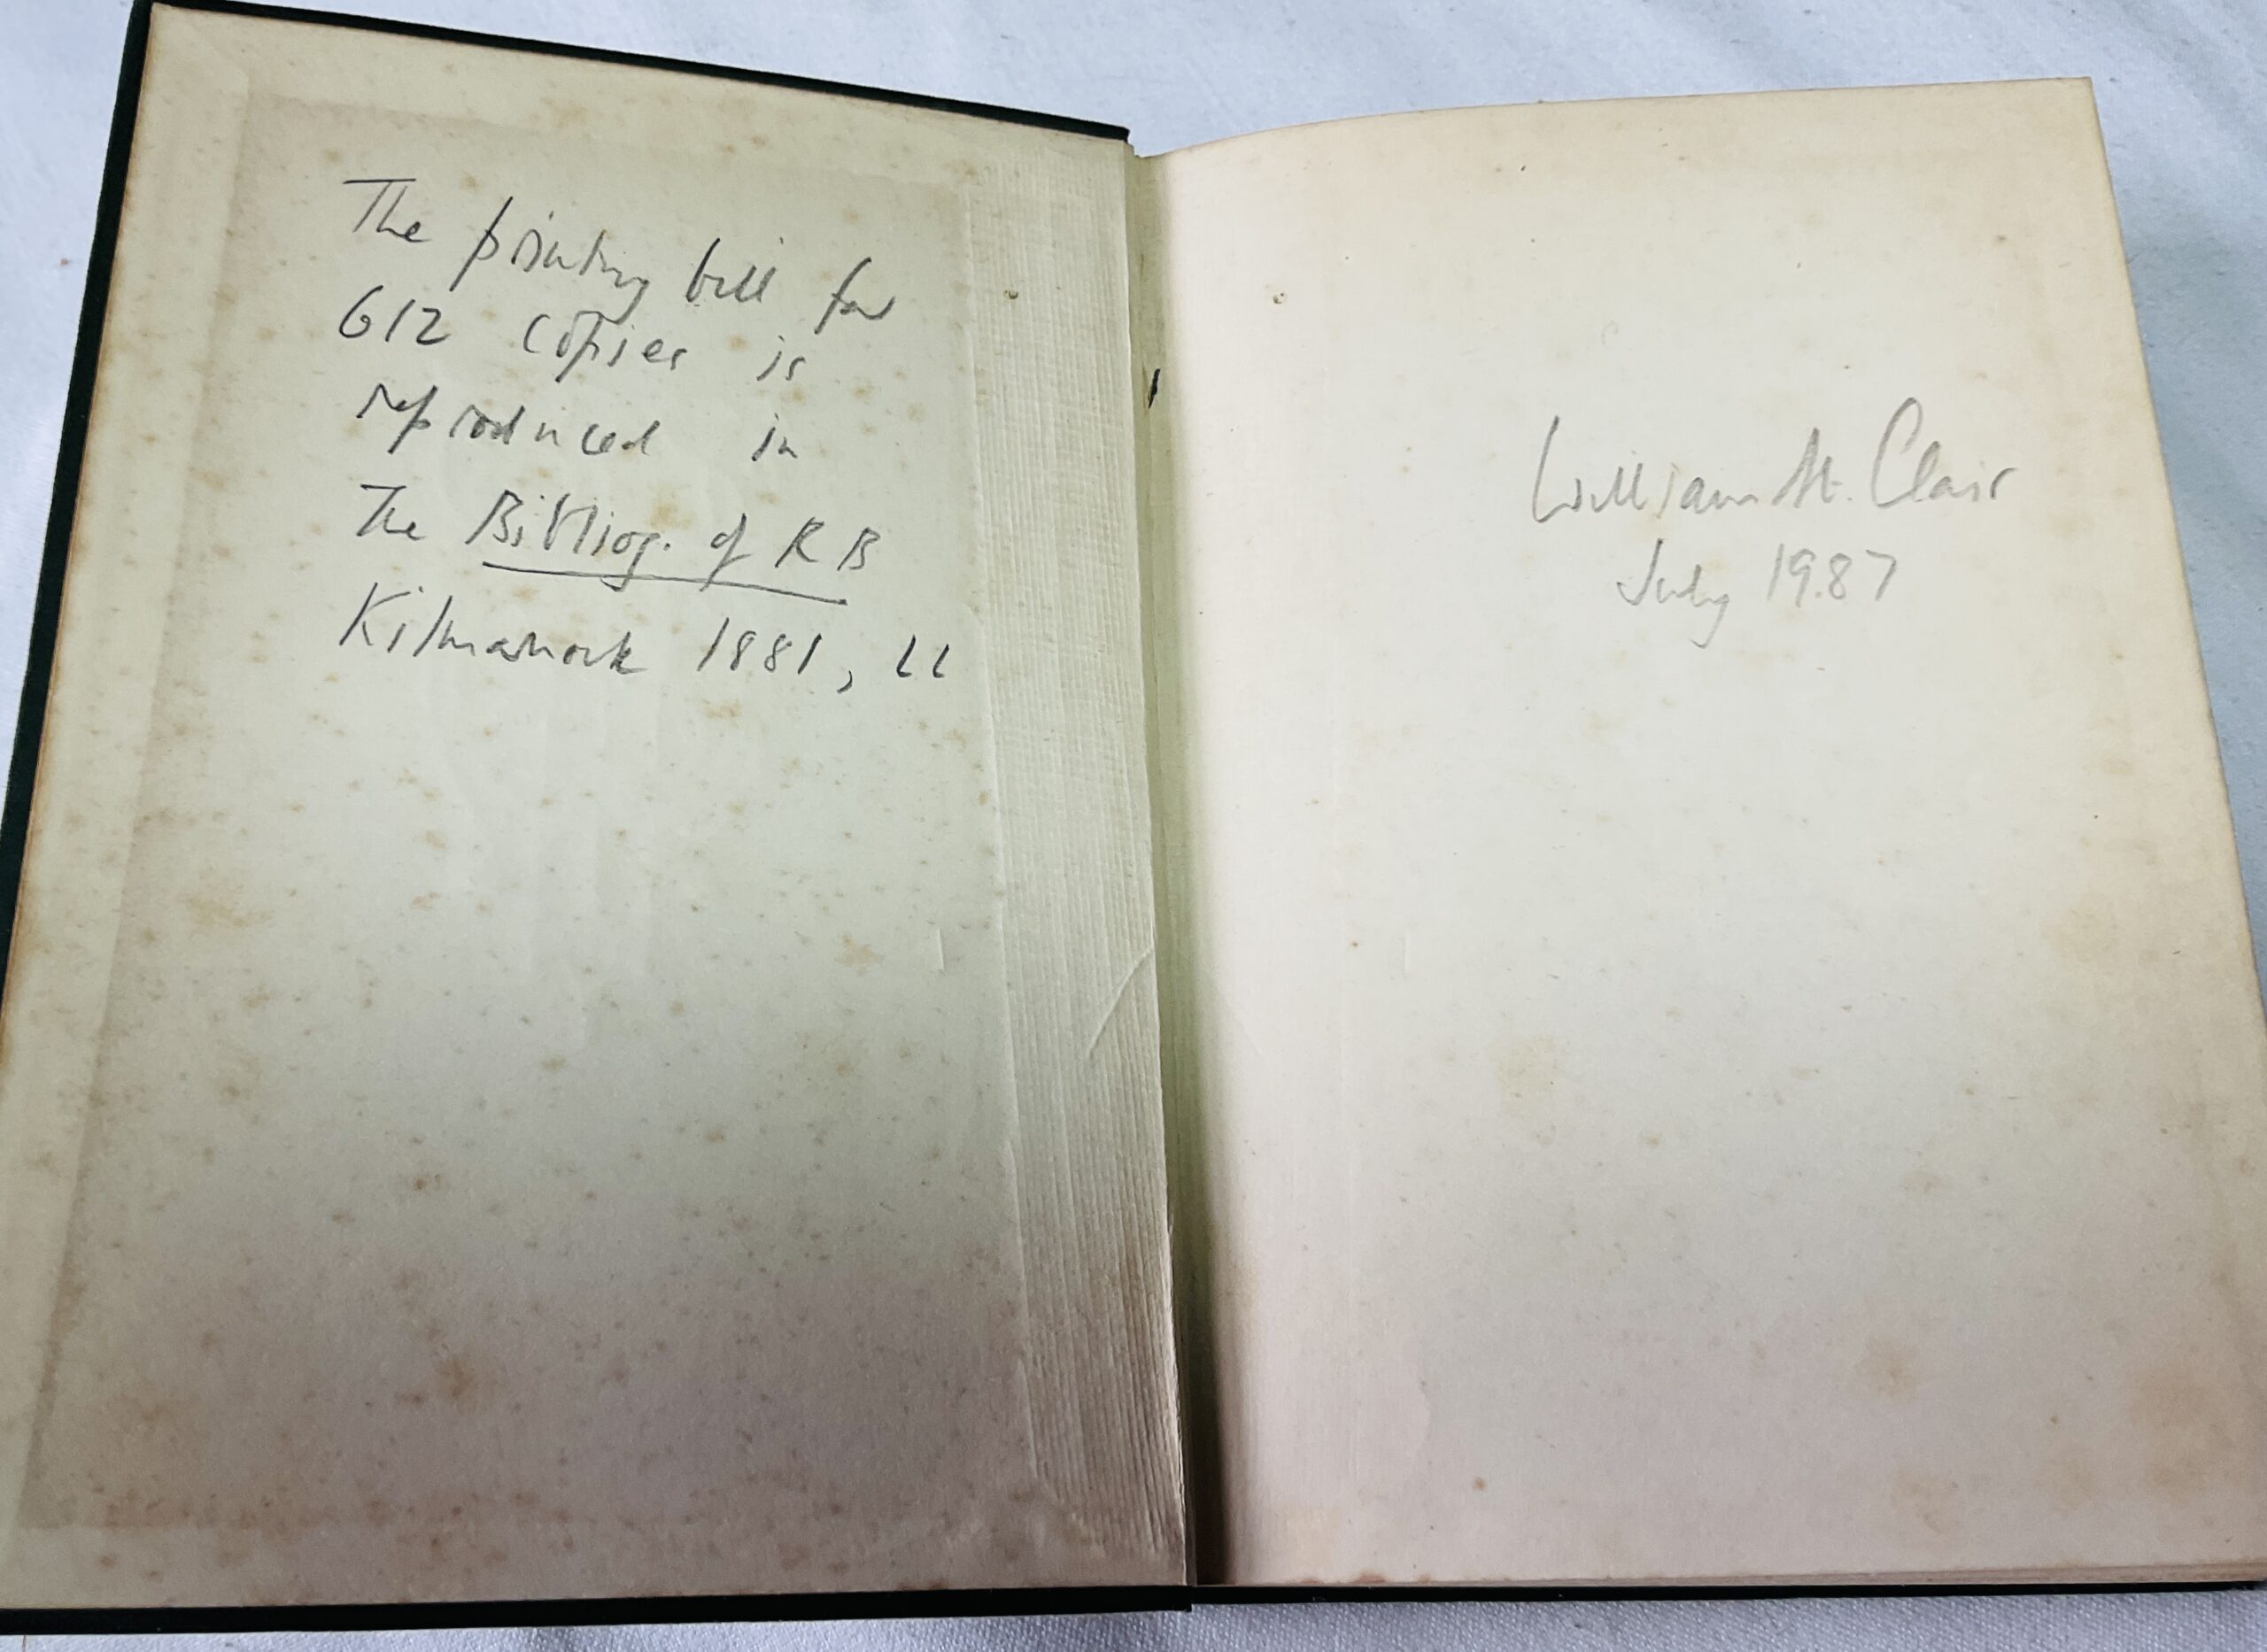 The printing bill for
612 copies is
reproduced in
The Bibliog. of RB
Kilmarnock 1881,
William St. Clair
July 1987